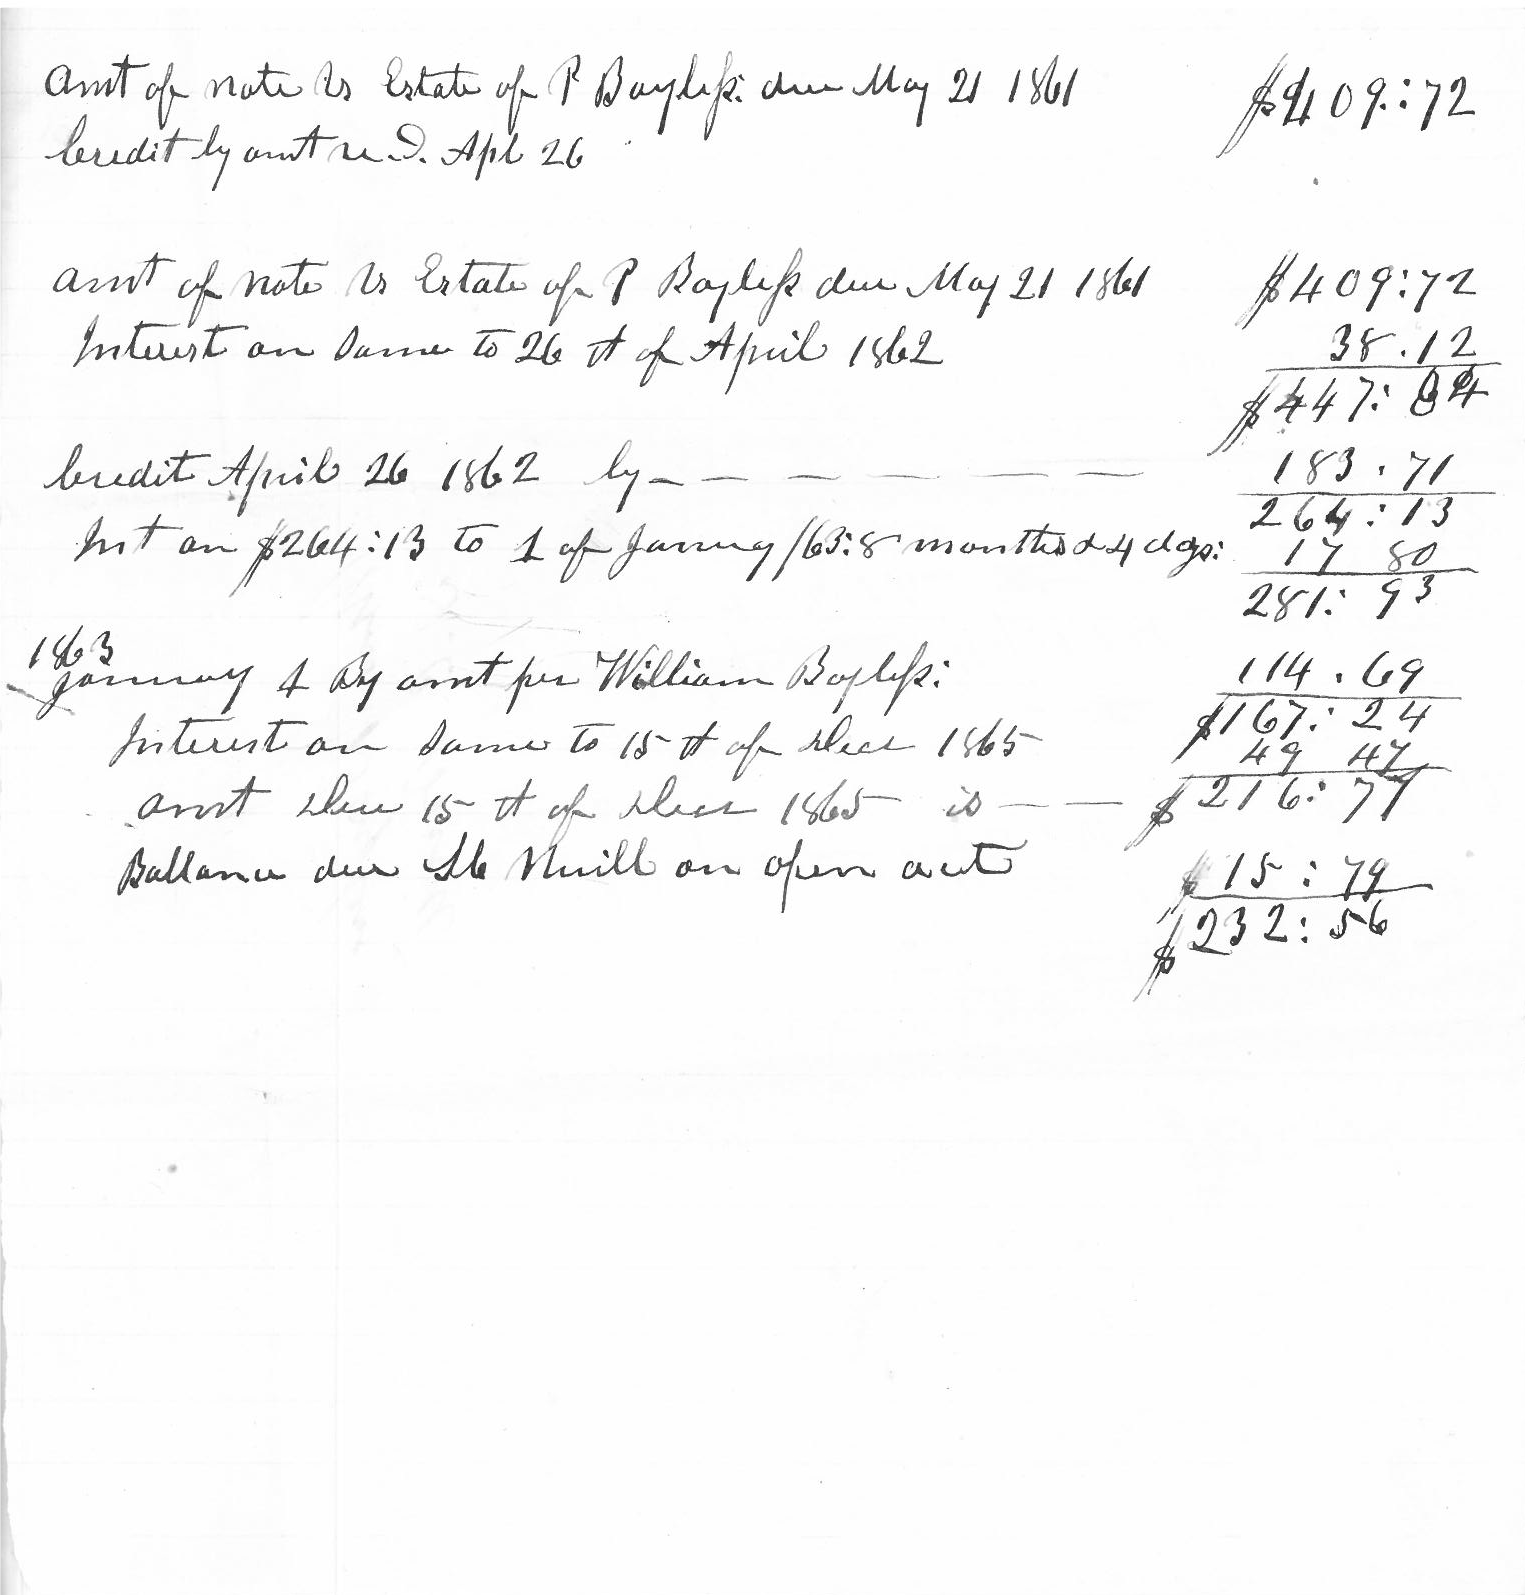 Amt of note Vs Estate of P Bayless: due May 21 1861 $409:72
Credit by amt re.d. Apl 26
Amt of note Vs Estate of P Bayless due May 21 1861 $409:72
Interest on Same to 26th of April 1862 38.12
$447:84
Credit April 26 1862 by — — — — — — 183.71
264:13
Int on $264:13 to 1 of January /63:8 months & 4 dys: 17 80
281:93
1863
January 1 By amt per William Bayless: 114.69
$167:24
Interest on Same to 15th of Decr 1865 49 47
Amt due 15th of Decr 1865 is — — $216:77
Ballance due on open acct $15:79
$232:56